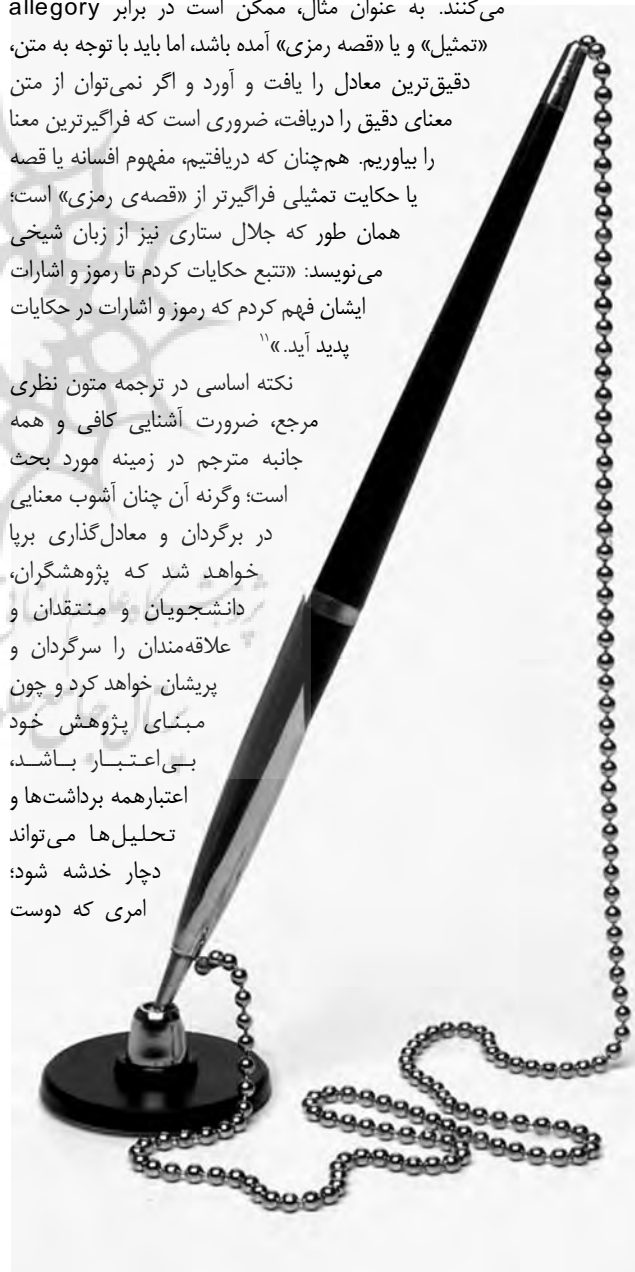 می‌کنند. به عنوان مثال، ممکن است در برابر allegory
«تمثیل» و یا «قصه رمزی» آمده باشد، اما باید با توجه به متن،
دقیق‌ترین معادل را یافت و آورد و اگر نمی‌توان از متن
معنای دقیق را دریافت، ضروری است که فراگیرترین معنا
را بیاوریم. هم‌چنان که دریافتیم، مفهوم افسانه یا قصه
یا حکایت تمثیلی فراگیرتر از «قصه‌ی رمزی» است؛
همان طور که جلال ستاری نیز از زبان شیخی
می‌نویسد: «تتبع حکایات کردم تا رموز و اشارات
ایشان فهم کردم که رموز و اشارات در حکایات
پدید آید.»۱۱
نکته اساسی در ترجمه متون نظری
مرجع، ضرورت آشنایی کافی و همه
جانبه مترجم در زمینه مورد بحث
است؛ وگرنه آن چنان آشوب معنایی
در برگردان و معادل‌گذاری برپا
خواهد شد که پژوهشگران،
دانشجویان و منتقدان و
علاقه‌مندان را سرگردان و
پریشان خواهد کرد و چون
مبنای پژوهش خود
بی‌اعتبار باشد،
اعتبارهمه برداشت‌ها و
تحلیل‌ها می‌تواند
دچار خدشه شود؛
امری که دوست